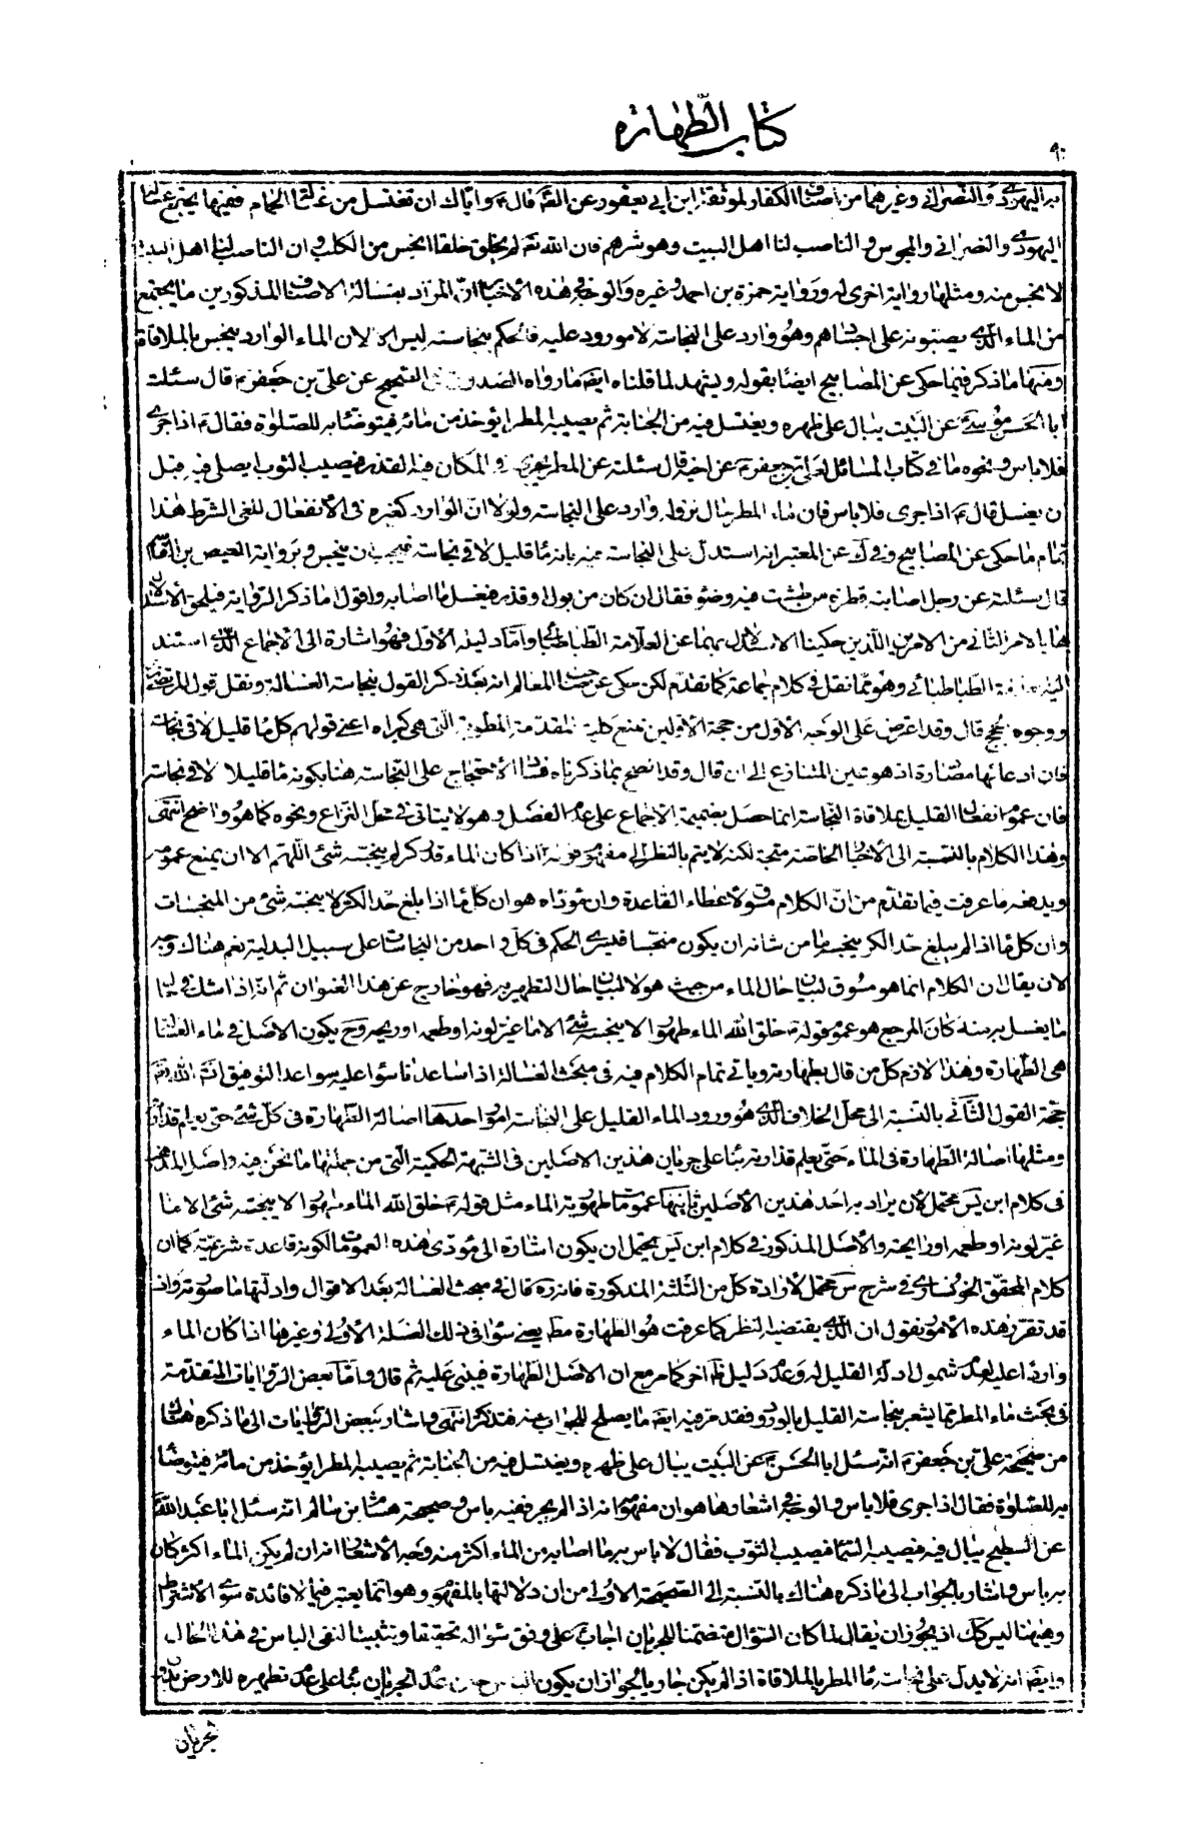 كتاب الطهارة
٩٠
به اليهودي والنصراني وغيرهما من اصناف الكفار لموثقة ابن ابي يعفور عن الصّ قال ع واياك ان تغتسل من غسالة الحمام ففيها يجتمع غسالة
اليهودي والنصراني والمجوس والناصب لنا اهل البيت وهو شرهم فان الله تع لم يخلق خلقا انجس من الكلب وان الناصب لنا اهل البيت
لانجس منه ومثلها رواية اخرى له ورواية حمزة بن احمد وغيره والوجه في هذه الأخبار ان المراد بغسالة الاصناف المذكورين ما يجتمع
من الماء الذي يصبونه على اجسامهم وهو وارد على النجاسة لا مورود عليه فالحكم بنجاسته ليس الا لان الماء الوارد ينجس بالملاقاة
ومنها ما ذكر فيما حكى عن المصابيح ايضا بقوله ويشهد لما قلناه ايضا ما رواه الصدوق في الصحيح عن علي بن جعفر ع قال سئلت
ابا الحسن موسى ع عن البيت يبال على ظهره ويغتسل فيه من الجنابة ثم يصيبه المطر ايؤخذ من مائه فيتوضا به للصلوة فقال ع اذا جرى
فلا باس ونحوه ما في كتاب المسائل لعلي بن جعفر ع عن اخيه قال سئلته عن المطر يجري في المكان فيه القذر فيصيب الثوب ايصلى فيه قبل
ان يغسل قال ع اذا جرى فلا باس فان ماء المطر حال نزوله وارد على النجاسة ولولا ان الوارد كغيره في الأنفعال للغى الشرط هذا
تمام ما حكى عن المصابيح وفي ك عن المعتبر انه استدل على النجاسة فيه بانه ماء قليل لاقى نجاسة فيجب ان ينجس وبرواية العيص بن القاسم
قال سئلته عن رجل اصابته قطرة من طشت فيه وضوء فقال ان كان من بول او قذر فيغسل ما اصابه واقول اما ذكر الرواية فيلحق الاستدلال
بها بالامر الثاني من الامرين اللذين حكينا الاستدلال بهما عن العلامة الطباطبائي واما دليله الاول فهو اشارة الى الاجماع الذي استند
اليه العلامة الطباطبائي وهو مما نقل في كلام جماعة كما تقدم لكن حكى عن صاحب المعالم انه بعد ذكر القول بنجاسة الغسالة ونقل قول المرتضى
ووجوه حجج قال وقد اعترض على الوجه الاول من حجة الاولين بمنع كلية المقدمة المطوية التي هي كبراه اعني قولهم كل ماء قليل لاقى نجاسة
فان ادعائها مصادرة اذ هو عين المتنازع إلى ان قال وقد اتضح بما ذكرناه فساد الأحتجاج على النجاسة هنا بكونه ماء قليلا لاقى نجاسة
فان عموم انفعال القليل بملاقاة النجاسة انما حصل بضميمة الاجماع على عدم الفصل وهو لا يتاتى في محل النزاع ونحوه كما هو واضح انتهى
وهذا الكلام بالنسبة الى الأخبار الخاصة متجه لكنه لا يتم بالنظر الى مفهوم قوله ع اذا كان الماء قدر كر لم ينجسه شئ اللهم الا ان يمنع عمومه
ويدفعه ما عرفت فيما تقدم من ان الكلام مسوق لاعطاء القاعدة وان مؤداه هو ان كل ماء اذا بلغ حد الكر لا ينجسه شئ من المنجسات
وان كل ماء اذا لم يبلغ حد الكر ينجسه ما من شانه ان يكون منجسا فيسري الحكم في كل واحد من النجاسات على سبيل البدلية نعم هناك وجه
لان يقال ان الكلام انما هو مسوق لبيان حال الماء من حيث هو لا لبيان حال التطهير به فهو خارج عن هذا العنوان ثم انه اذا شك في
ما يغسل به منه كان المرجع هو عموم قوله ع خلق الله الماء طهورا لا ينجسه شئ الا ما غير لونه او طعمه او ريحه وح يكون الاصل في ماء الغسالة
هي الطهارة وهذا لازم كل من قال بطهارته وياتي تمام الكلام فيه في مبحث الغسالة اذا ساعدنا سواعد التوفيق انشاء الله تع
حجة القول الثاني بالنسبة الى محل الخلاف الذي هو ورود الماء القليل على النجاسة امور احدها اصالة الطهارة في كل شئ حتى يعلم قذارته
ومثلها اصالة الطهارة في الماء حتى يعلم قذارته بناء على جريان هذين الاصلين في الشبهة الحكمية التي من جملتها ما نحن فيه واصل
في كلام ابن يس محتمل لان يراد به احد هذين الأصلين ثانيها عمومات طهورية الماء مثل قوله ع خلق الله الماء طهورا لا ينجسه شئ الا ما
غير لونه او طعمه او رايحته والأصل المذكور في كلام ابن يس يحتمل ان يكون اشارة الى مؤدى هذه العمومات لكونه قاعدة شرعية كما ان
كلام المحقق الخونساري في شرح س محتمل لأرادة كل من الثلثة المذكورة فانه ره قال في مبحث الغسالة بعد الاقوال وادلتها ما صورته واذ
قد تقرر هذه الأمور نقول ان الذي يقتضيه النظر كما عرفت هو الطهارة مط يعني سواء في ذلك الغسلة الأولى وغيرها اذا كان الماء
واردا عليه لعدم شمول ادلة القليل له وعدم دليل اخر كما مر مع ان الاصل الطهارة فيبنى عليه ثم قال واما بعض الروايات المتقدمة
في بحث ماء المطر مما يشعر بنجاسة القليل بالورود فقد مر فيه ايضا ما يصلح للجواب عنه فتذكر انتهى واشار ببعض الروايات الى ما ذكره هناك
من صحيحة علي بن جعفر ع انه سئل ابا الحسن ع عن البيت يبال على ظهره ويغتسل فيه من الجنابة ثم يصيبه المطر ايؤخذ من مائه فيتوضا
به للصلوة فقال اذا جرى فلا باس والوجه في اشعارها هو ان مفهومه انه اذا لم يجر ففيه باس وصحيحة هشام بن سالم انه سئل ابا عبد الله ع
عن السطح يبال فيه فيصيبه السماء فيصيب الثوب فقال لا باس به ما اصابه من الماء اكثر منه وجه الأشعار انه ان لم يكن الماء اكثر كان
به باس واشار بالجواب الى ما ذكره هناك بالنسبة الى الصحيحة الاولى من ان دلالتها بالمفهوم وهو انما يعتبر فيما لا فائدة سوى الأشتراط
وهيهنا ليس كك اذ يجوز ان يقال لما كان السؤال متضمنا للجريان اجاب ع على وفق سؤاله تحقيقا وتثبيتا لنفي الباس في هذا الحال
وايضا انه لا يدل على نجاسة ماء المطر بالملاقاة اذا لم يكن جاريا لجواز ان يكون عدم الجريان بناء على عدم تطهيره للارض بدون
الجريان